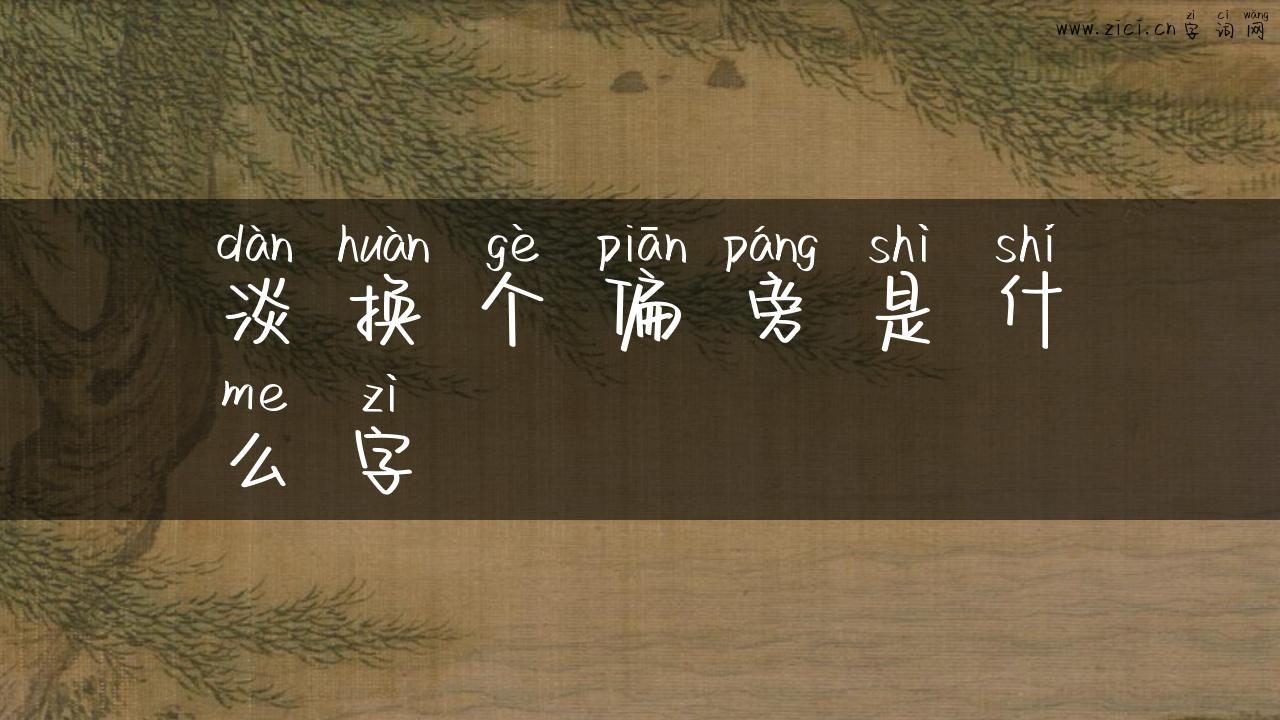 zì cí wǎng
www.zici.cn 字 词 网
dàn huàn gè piān páng shì shí
淡 换 个 偏 旁 是 什
me zì
么 字